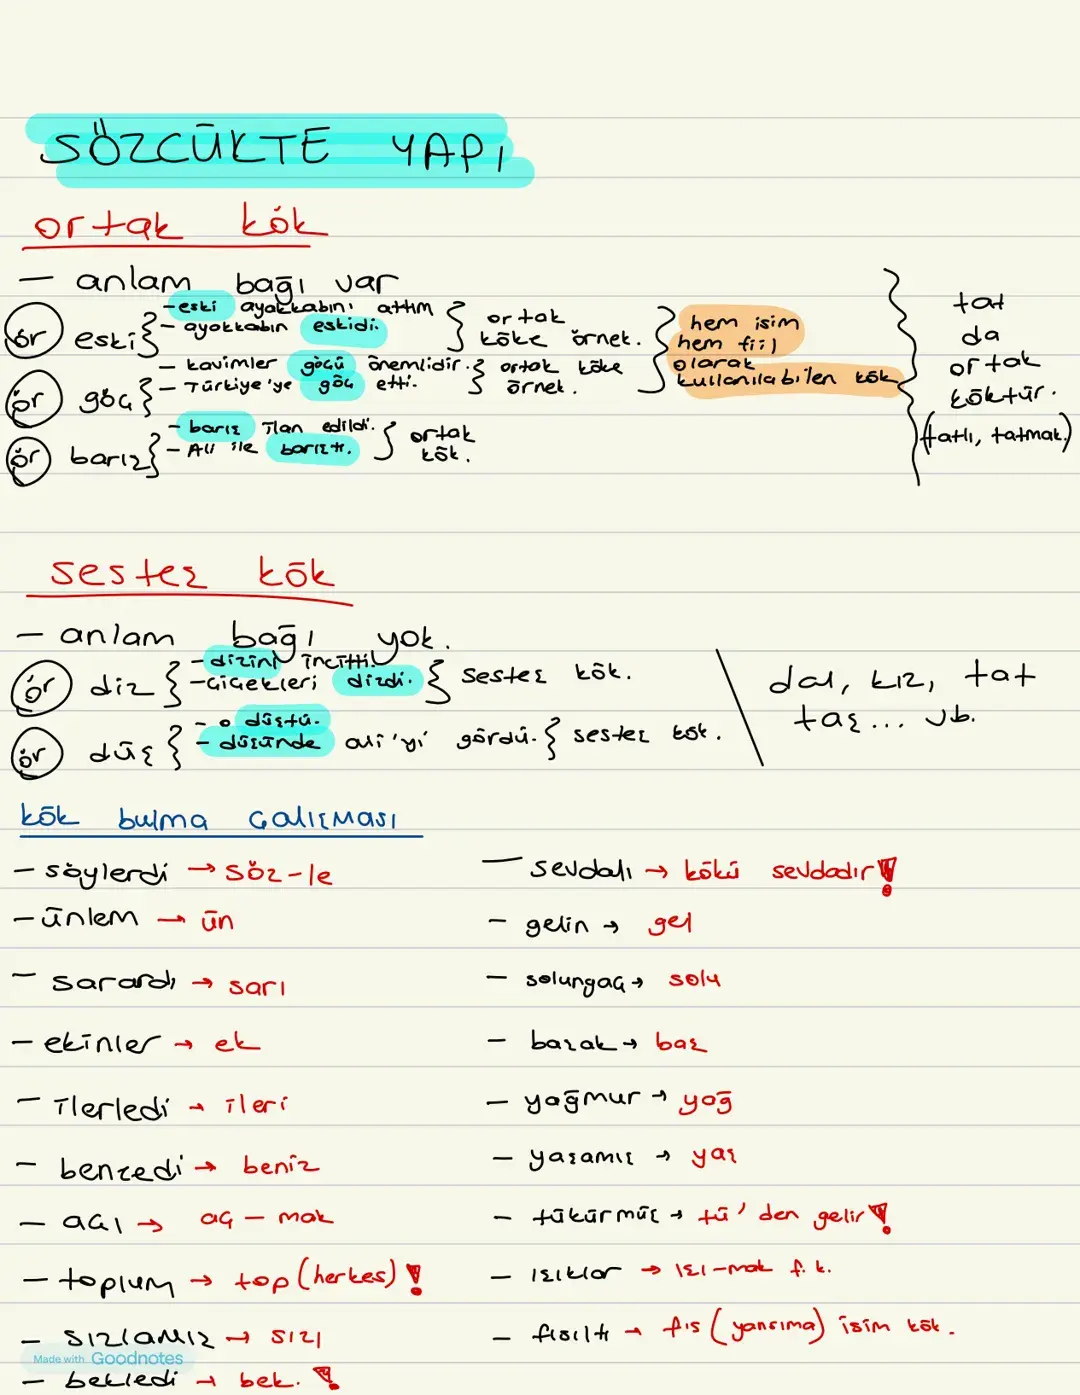 SÖZCÜKTE YAPI
ortak kök
— anlam bağı var
ör eski { - eski ayakkabını attım
- ayakkabın eskidi. } ortak köke örnek.
ör göç { - kavimler göçü önemlidir.
- Türkiye'ye göç etti. } ortak köke örnek.
ör barış { - barış ilan edildi.
- Ali ile barıştı. } ortak kök.
} hem isim
hem fiil
olarak
kullanılabilen kök
} tat
da
ortak
köktür.
(tatlı, tatmak.)
sesteş kök
— anlam bağı yok.
ör diz { - dizini incitti.
- çiçekleri dizdi. } sesteş kök.
ör düş { - o düştü.
- düşünde ali'yi gördü. } sesteş kök.
/ dal, kız, tat
taş... vb.
kök bulma çalışması
- söylerdi → söz-le
- ünlem → ün
- sarardı → sarı
- ekinler → ek
- ilerledi → ileri
- benzedi → beniz
- açı → aç - mak
- toplum → top (herkes) !
- sızlamış → sızı
- bekledi → bek. !
- sevdalı → kökü sevdadır !
- gelin → gel
- solungaç → solu
- başak → baş
- yağmur → yağ
- yaşamış → yaş
- tükürmüş → tü'den gelir !
- ışıklar → ışı-mak f. k.
- fısıltı → fıs (yansıma) isim kök.
Made with Goodnotes